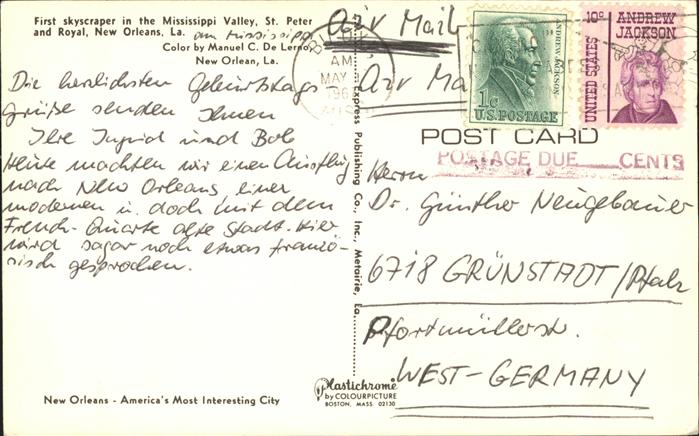 First skyscraper in the Mississippi Valley, St. Peter
and Royal, New Orleans, La.
am Mississippi
Color by Manuel C. De Lerno,
New Orlean, La.
Die herzlichsten Geburtstags
grüße senden Ihnen
Ihre Ingrid und Bob
Heute machten wir einen Ausflug
nach New Orleans einer
modernen u. doch mit dem
French-Quarte alte Stadt. Hier
wird sogar noch etwas franzö-
sisch gesprochen.
New Orleans - America's Most Interesting City
Express Publishing Co., Inc., Metairie, La.
Air Mail
Air Ma
AM
MAY
196
1c
U.S. POSTAGE
ANDREW JACKSON
10c ANDREW
JACKSON
UNITED STATES
POST CARD
POSTAGE DUE CENTS
Herrn
Dr. Günther Neugebauer
6718 GRÜNSTADT/Pfalz
Pfortmüllerstr.
WEST-GERMANY
Plastichrome
by COLOURPICTURE
BOSTON, MASS. 02130